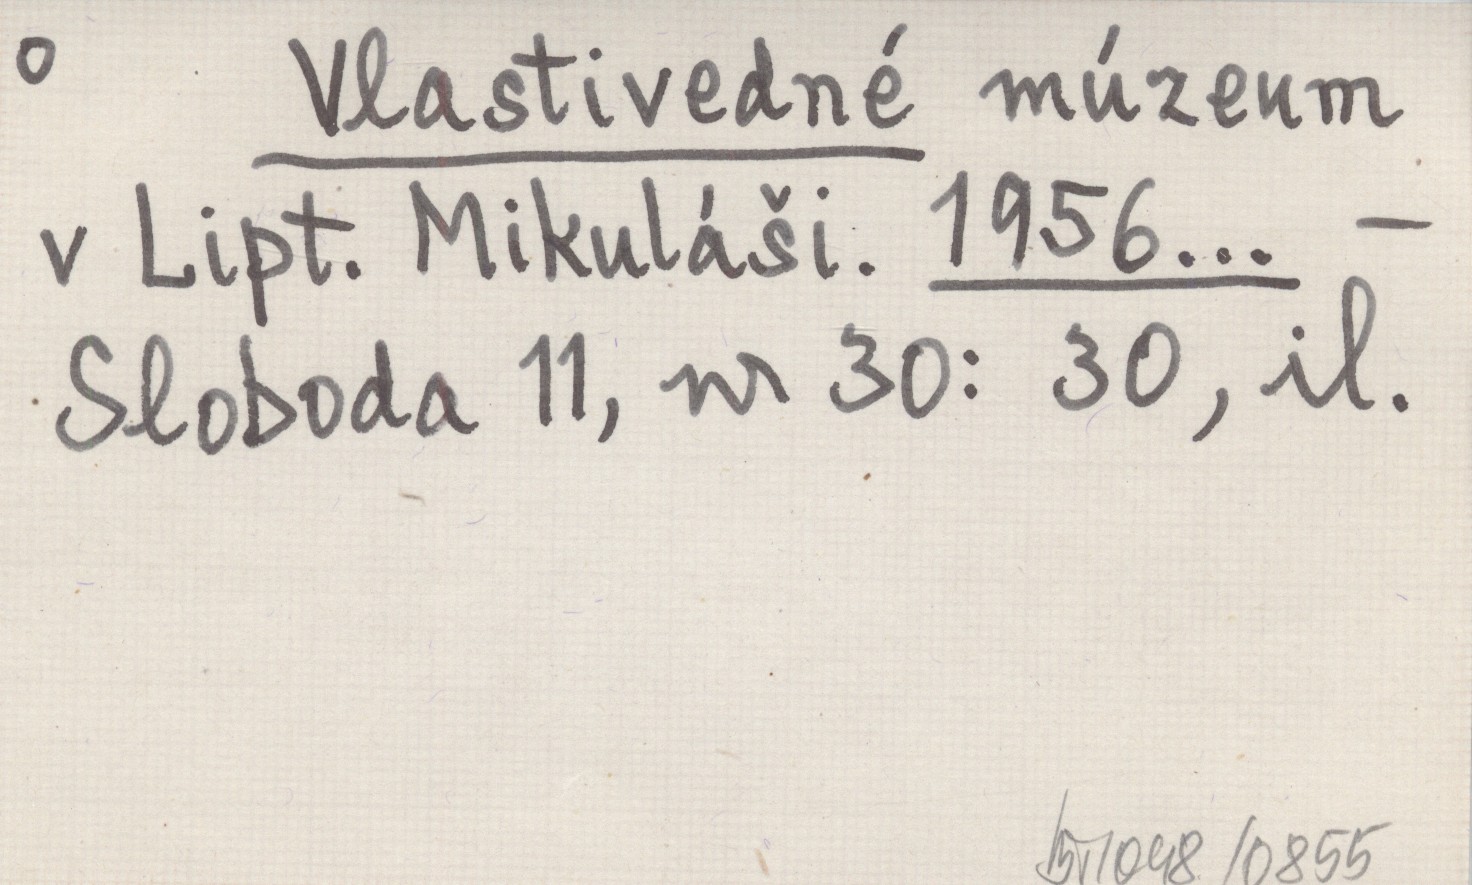 o Vlastivedné múzeum
v Lipt. Mikuláši. 1956... —
Sloboda 11, nr 30: 30, il.
/0855